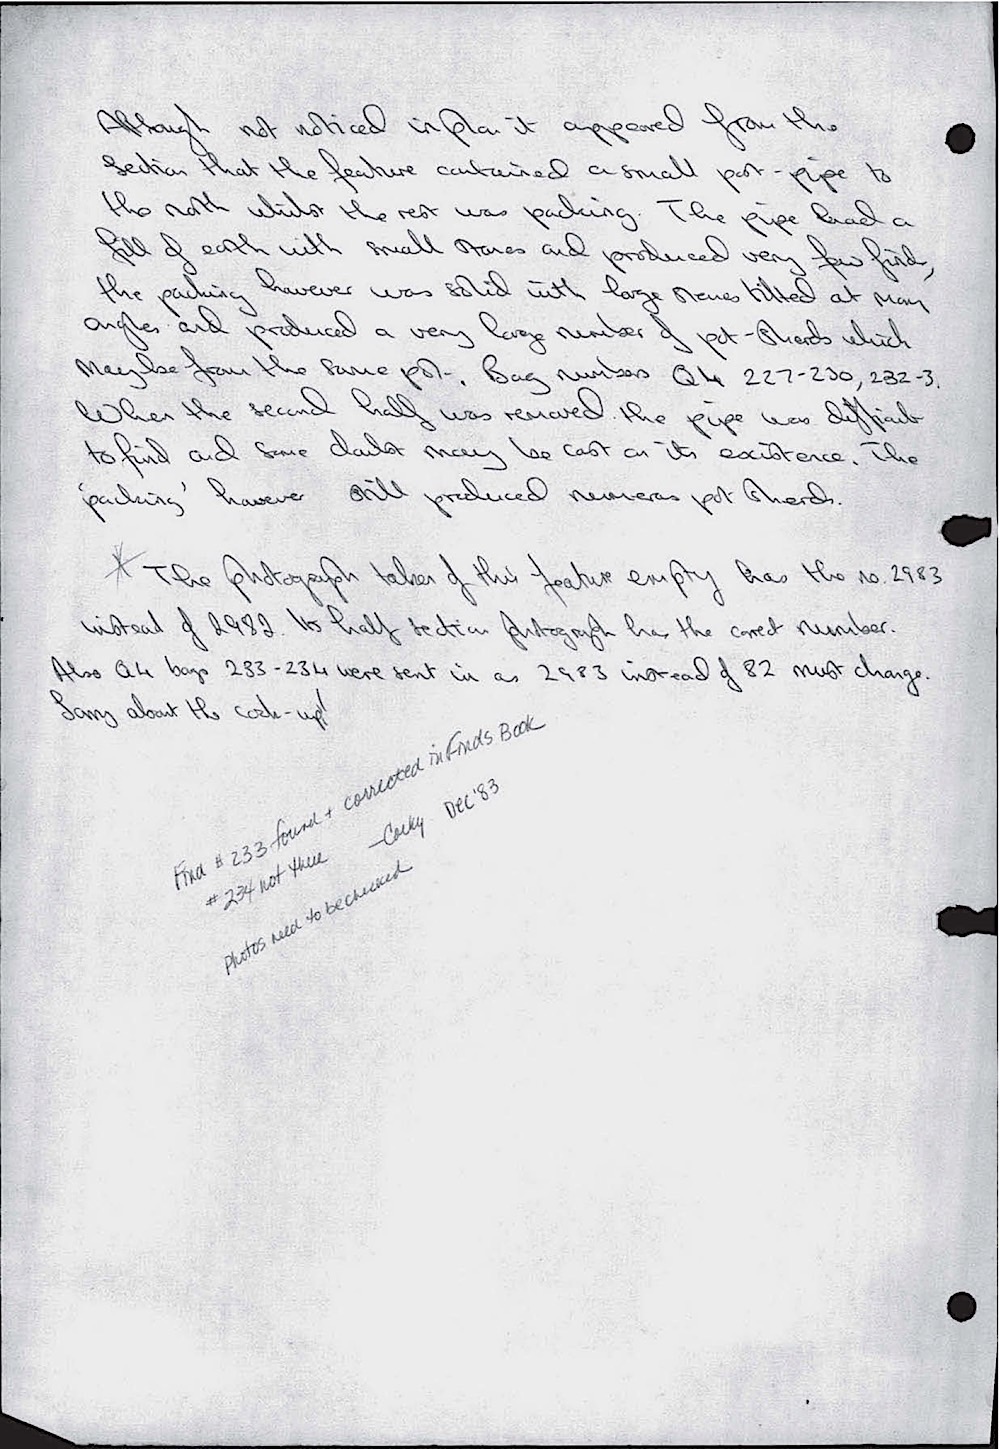 Although not noticed in plan it appeared from the
section that the feature contained a small post-pipe to
the north whilst the rest was packing. The pipe had a
fill of earth with small stones and produced very few finds,
the packing however was solid with large stones tilted at many
angles and produced a very large number of pot-sherds which
maybe from the same pot. Bag numbers Q4 227-230, 232-3.
When the second half was removed the pipe was difficult
to find and some doubt may be cast on its existence. The
'packing' however still produced numerous pot sherds.
* The photograph taken of this feature empty has the no. 2983
instead of 2982. Its half section photograph has the correct number.
Also Q4 bags 233-234 were sent in as 2983 instead of 82 must change.
Sorry about the cock-up!
Find # 233 found + corrected in Finds Book
# 234 not there - Corky Dec '83
Photos need to be checked